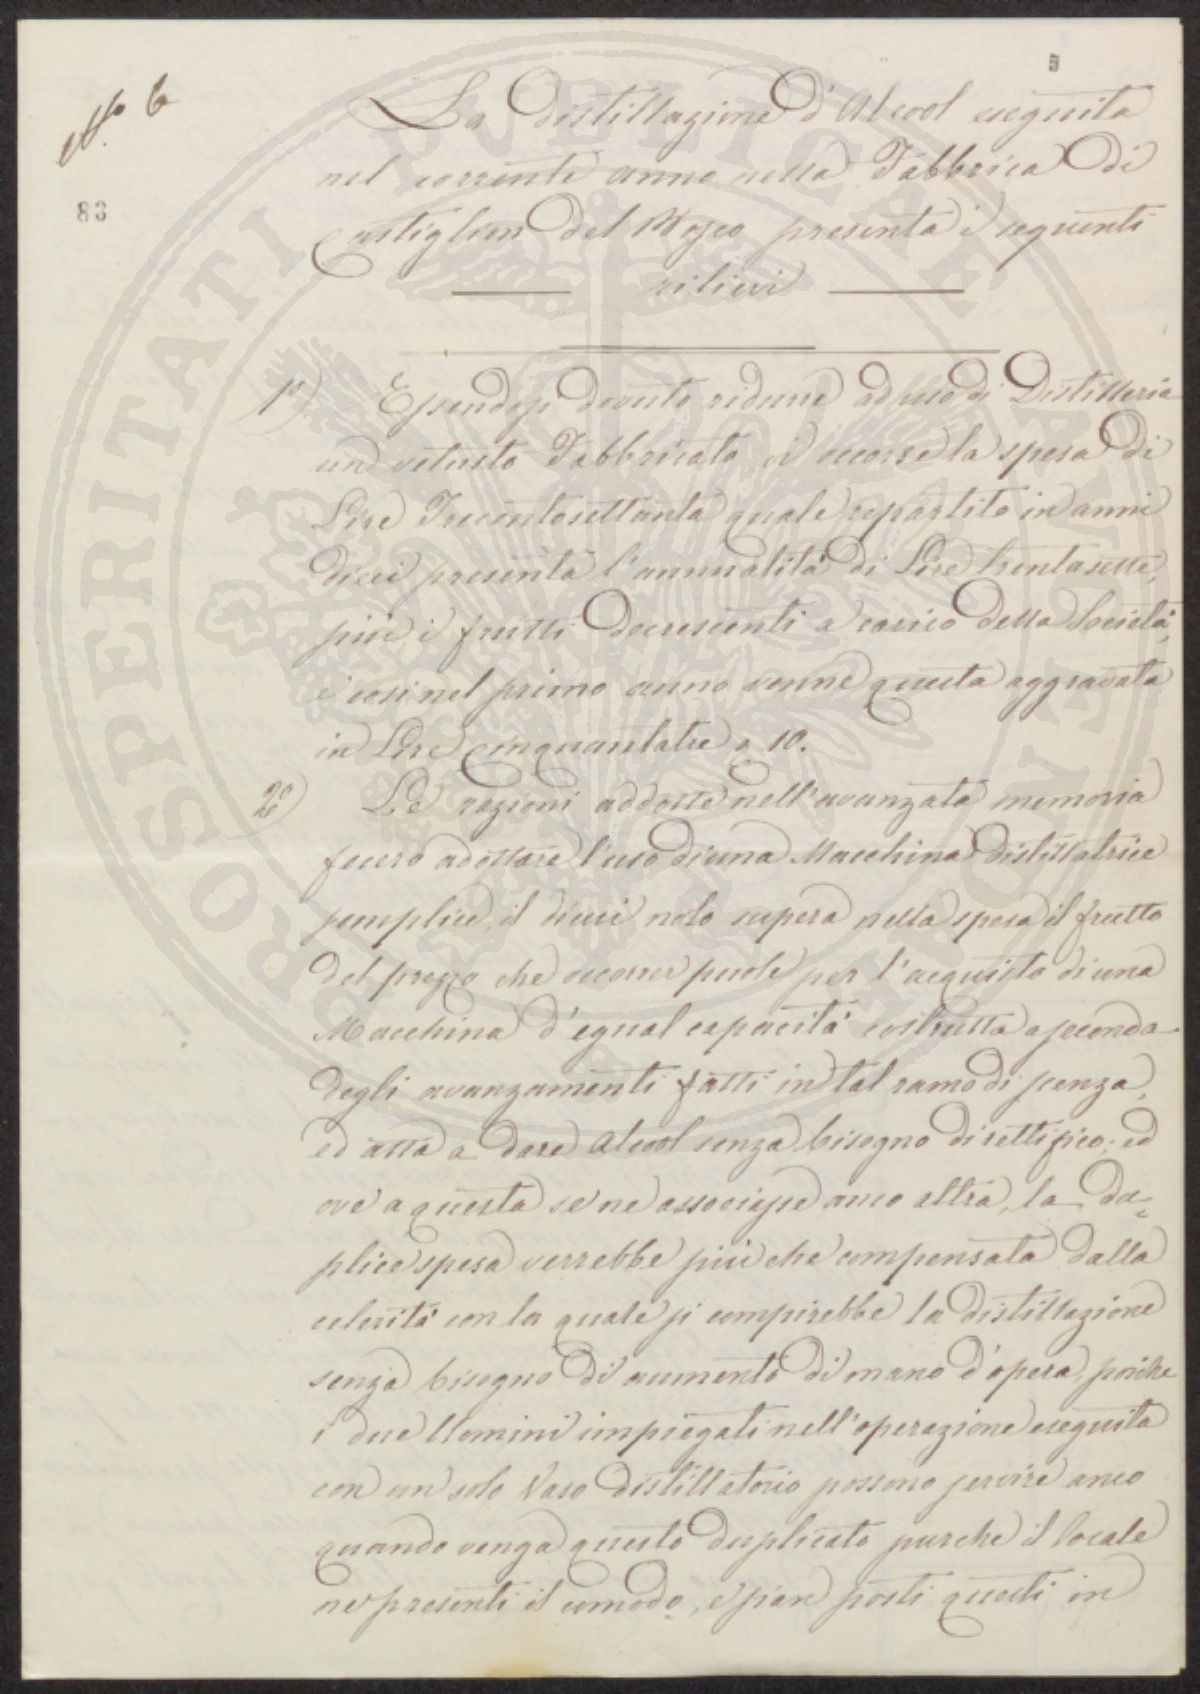 5
N.° 6
83
La Distillazione d'Alcool eseguita
nel corrente anno nella Fabbrica di
Castiglion del Bosco presenta i seguenti
rilievi
1°) Essendosi dovuto ridurre ad uso di Distilleria
un vetusto Fabbricato vi occorse la spesa di
Lire Trecentosettanta quale repartito in anni
dieci presenta l'annualità di Lire trentasette,
più i frutti decrescenti a carico della Società,
e così nel primo anno venne questa aggravata
in Lire Cinquantatre e 10.
2°) Le ragioni addotte nell'avanzata memoria
fecero adottare l'uso di una Macchina distillatrice
semplice, il di cui nolo supera nella spesa il frutto
del prezzo che occorrer puole per l'acquisto di una
Macchina d'egual capacità costrutta a seconda
degli avanzamenti fatti in tal ramo di scenza,
ed atta a dare Alcool senza bisogno di rettifico; ed
ove a questa se ne associasse anco altra, la du=
plice spesa verrebbe più che compensata dalla
celerità con la quale si compirebbe la distillazione
senza bisogno di aumento di mano d'opera, poiche
i due Uomini impiegati nell'operazione eseguita
con un solo Vaso distillatorio possono servire anco
quando venga questo duplicato purche il locale
ne presenti il comodo, e sian posti questi in
PROSPERITATI PUBLICAE